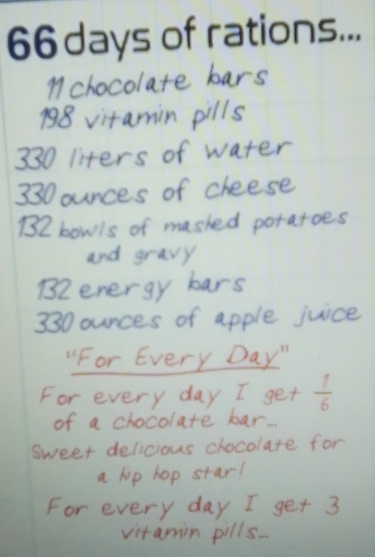 66 days of rations...
11 chocolate bars
198 vitamin pills
330 liters of water
330 ounces of cheese
132 bowls of mashed potatoes
and gravy
132 energy bars
330 ounces of apple juice
"For Every Day"
For every day I get 1/6
of a chocolate bar...
Sweet delicious chocolate for
a hip hop star!
For every day I get 3
vitamin pills...